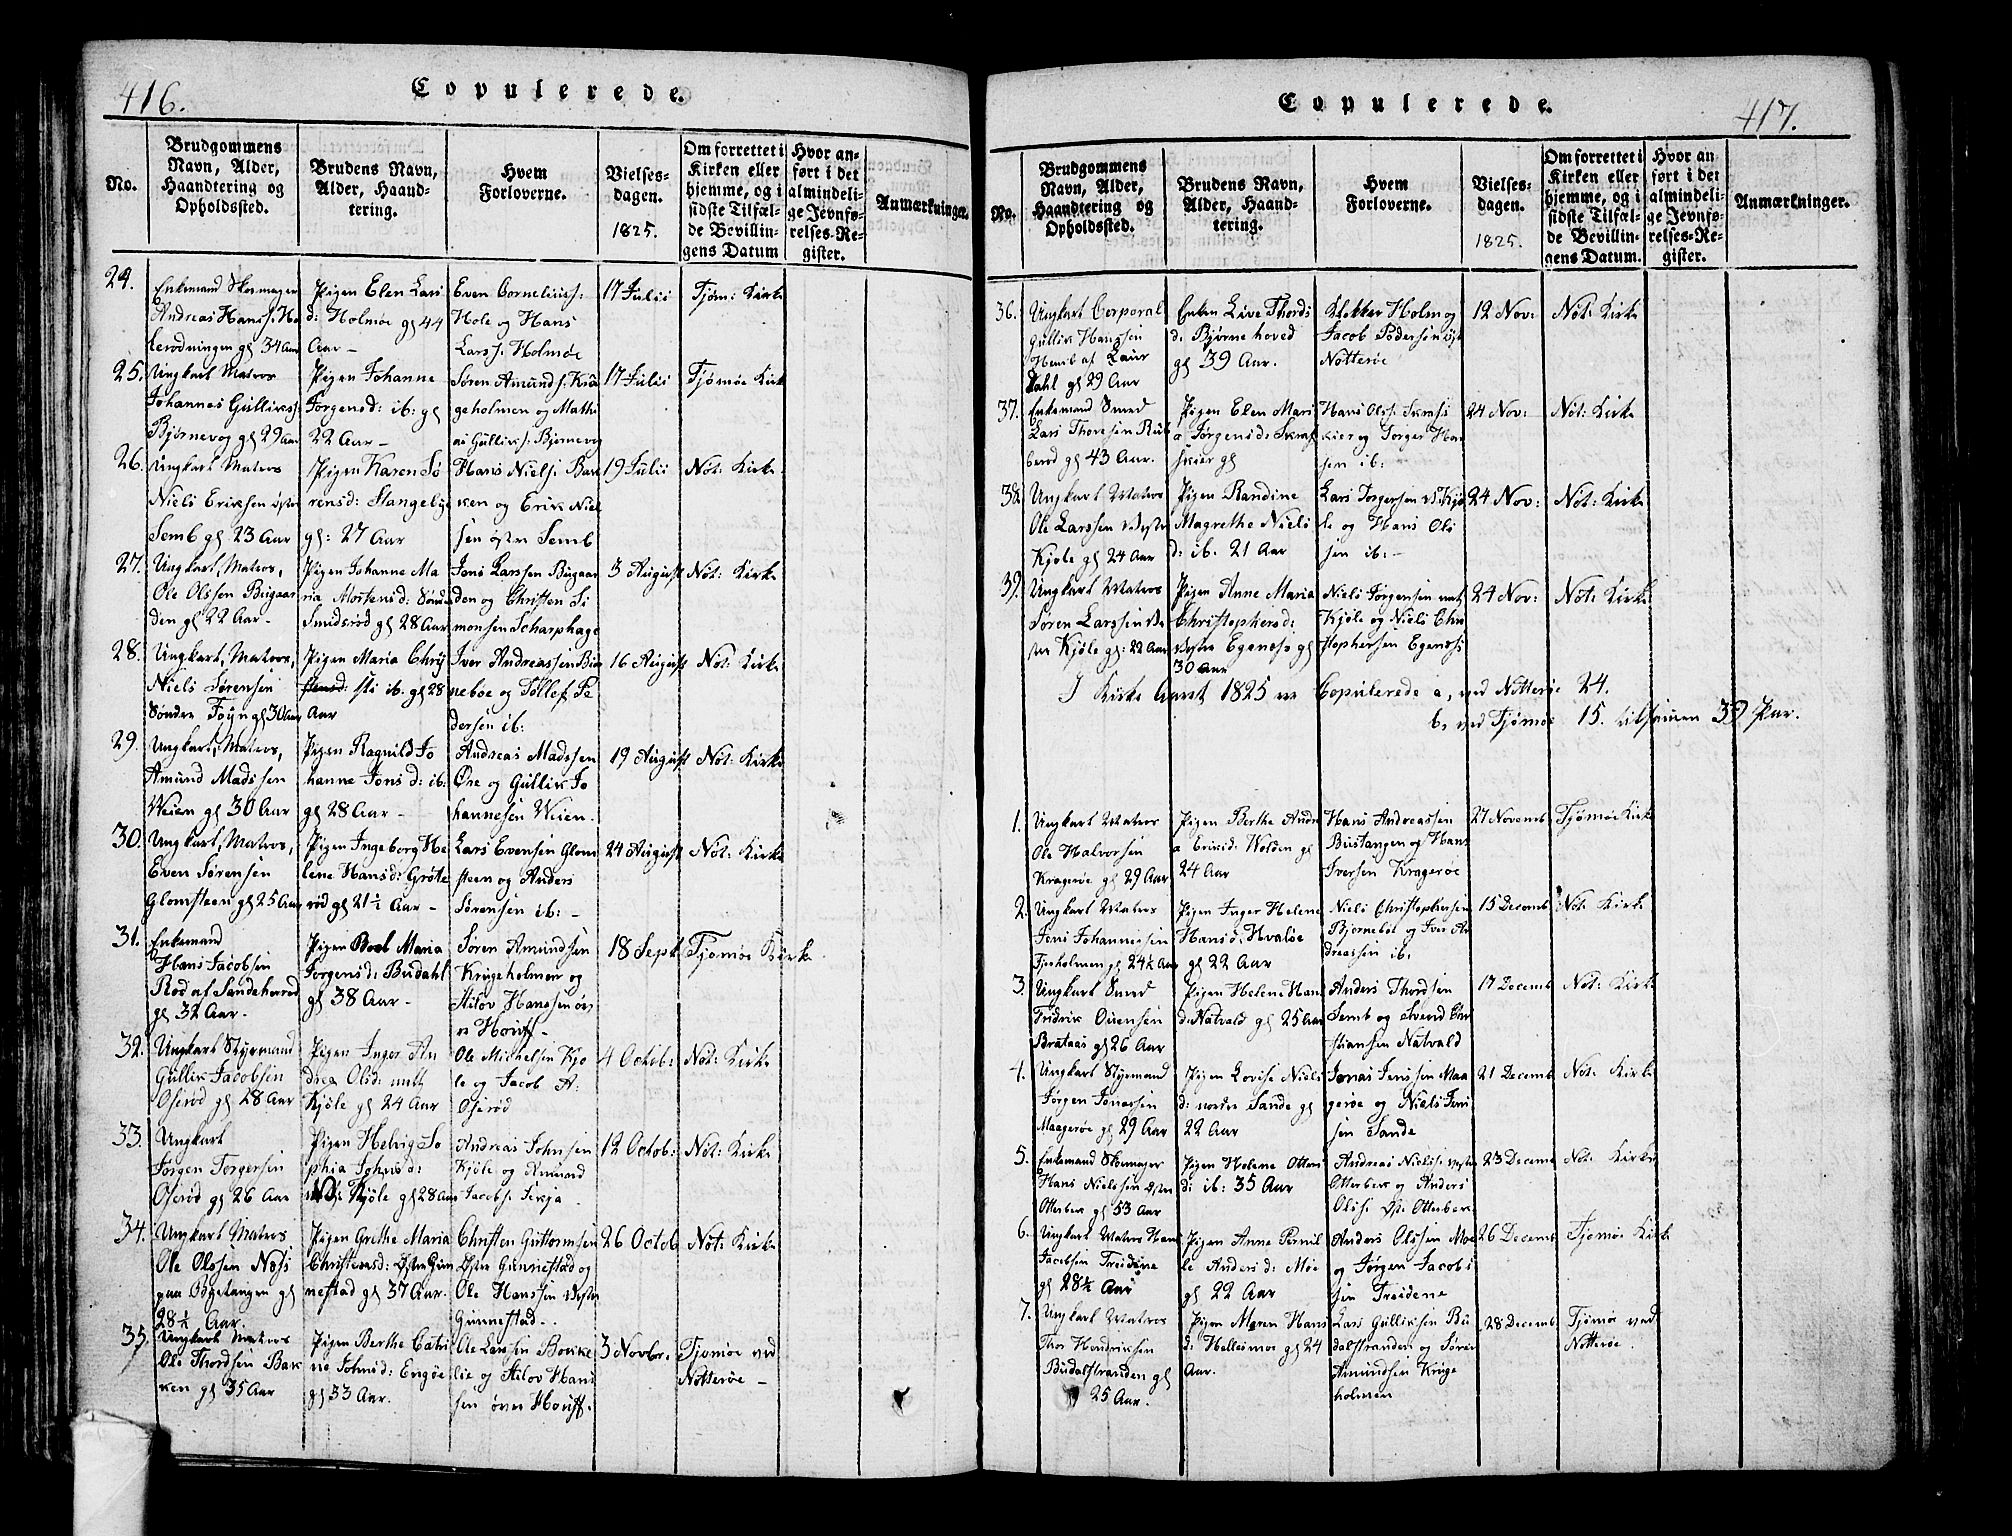 416.
Copulerede.
No.
Brudgommens
Navn, Alder,
Haandtering og
Opholdssted.
Brudens Navn,
Alder, Haand-
tering.
Hvem
Forloverne.
Vielses-
dagen.
1825.
Om forrettet i
Kirken eller
hjemme, og i
sidste Tilfæl-
de Bevillin-
gens Datum
Hvor an-
ført i det
almindeli-
ge Jevnfø-
relses-Re-
gister.
Anmærkninger.
24.
Enkemand Skomager
Andreas Hans:
gl 34 Aar
Pigen Elen Lars
d: Holmøe gl 44
Aar
Even Cornelius:
Hole og Hans
Lars: Holmøe
17 Julii
Tjøm: Kirke
25.
Ungkarl Matros
Johannes Gulliks:
Bjørnevog gl 29 Aar
Pigen Johanne
Jørgensd: ib: gl
22 Aar
Søren Amunds: Krü
geholmen og Mathi
as Gulliks: Bjørnevog
17 Julii
Tjømøe Kirk
26.
Ungkarl Matros
Niels Eriksen østre
Semb gl 23 Aar
Pigen Karen Sø
rensd: Stangeby
gl: 27 Aar
Hans Niels: Bak
ken og Erik Niel
sen østre Semb
19 Julii
Nöt: Kirke
27.
Ungkarl, Matros,
Ole Olssen Bugaar
den gl 22 Aar
Pigen Johanne Ma
ria Mortensd: Søndre
Smidsrød gl 28 Aar
Jens Larssen Bugaar
den og Christen Si
monsen Scharphage
3 August
Nöt: Kirke
28.
Ungkarl, Matros,
Niels Sørensen
Søndre Foyn gl 30 Aar
Pigen Maria Chry
sti ib. gl 28
Aar
Iver Andreassen Biø
neboe og Tollef Pe
dersen ib:
16 August
Nöt: Kirke
29.
Ungkarl, Matros,
Amund Madssen
Weien gl 30 Aar
Pigen Ragnild Jo
hanne Jens d: ib:
gl 28 Aar
Andreas Madssen
Øre og Gullik Jo
hannesen Weien.
19 August
Nöt: Kirke
30.
Ungkarl, Matros,
Even Sørensen
Glomsteen gl 25 Aar
Pigen Ingeborg He
lene Hansd: Grøte
rød gl 21½ Aar
Lars Evensen Glom
steen og Anders
Sørensen ib:
24 August
Nöt: Kirke
31.
Enkemand
Hans Jacobsen
Rød af Sandeherred
gl 32 Aar.
Pigen Boel Maria
Jørgensd: Budahl
gl 38 Aar
Søren Amundsen
Krugeholmen og
Stilov Hanssen øv
re Houff
18 Sept:
Tjømøe Kirke
32.
Ungkarl Styrmand
Gullik Jacobsen
Oserød gl 28 Aar
Pigen Inger An
drea Olsd:
Kjøle gl 24 Aar
Ole Michelsen Kjø
le og Jacob A:
Oserød
4 Octob:
Nöt: Kirke
33.
Ungkarl
Jørgen Torgersen
Oserød gl 26 Aar
Pigen Helvig So
phia Johnsd:
Kjøle gl 28 Aar
Andreas Johnsen
Kjøle og Amund
Jacobs: Fekja
12 Octob:
Nöt: Kirke
34.
Ungkarl Matros
Ole Olssen Næss
paa Bøgetangen gl
28½ Aar.
Pigen Grethe Maria
Christensd: Østre Gün
nestad gl 37 Aar.
Christen Guttormsen
Østre Gunnestad og
Ole Hanssen Vestre
Gunnestad
26 Octob
Nöt: Kirke
35.
Ungkarl Matros
Ole Thordsen Bak
ken gl 35 Aar
Pigen Berthe Cathi
ne Johnsd: Engøe
gl 33 Aar.
Ole Larssen Bonke
lie og Stilov Hans
sen øvre Houff.
3 Novbr.
Tjømøe ved
Nötterøe
Copulerede.
417.
No.
Brudgommens
Navn, Alder,
Haandtering og
Opholdssted.
Brudens Navn,
Alder, Haand-
tering.
Hvem
Forloverne.
Vielses-
dagen.
1825.
Om forrettet i
Kirken eller
hjemme, og i
sidste Tilfæl-
de Bevillin-
gens Datum.
Hvor an
ført i det
almindeli-
ge Jevnfø-
relses-Re-
gister.
Anmærkninger.
36.
Ungkarl Corporal
Gullik Hanssen
Hemb af Laur
dahl gl 29 Aar
Enken Live Thords
d: Bjørnehoved
gl 39 Aar.
Klokker Holm og
Jacob Pedersen øst
Nötterøe
12 Nov:
Nöt: Kirke
37.
Enkemand Smed
Lars Thoresen Rub
berød gl 43 Aar.
Pigen Elen Mari
a Jørgensd: Skaf
skier gl
Hans Ols: Skafs
kier og Torger Han
sen ib:
24 Nov:
Nöt: Kirke
38.
Ungkarl Matros
Ole Larssen Vestre
Kjøle gl 24 Aar
Pigen Randine
Magrethe Niels
d: ib. 21 Aar
Lars Torgersen V: Kjø
le og Hans Ols
sen ib:
24 Nov:
Nöt: Kirke
39.
Ungkarl Matros
Søren Larssen Ve
stre Kjøle gl: 22 Aar
Pigen Anne Maria
Christophersd:
vestre Egenæs gl
30 Aar
Niels Jørgensen
Kjøle og Niels Chri
stophersen Egenæs
24 Nov:
Nöt: Kirke
I Kirke Aaret 1825 er Copulerede a, ved Nötterøe 24.
b, ved Tjømøe 15. tilsamen 39 Par.
1.
Ungkarl Matros
Ole Halvorsen
Kragerøe gl 29 Aar
Pigen Berthe Andre
a Ericsd: Wolden gl
24 Aar
Hans Andreassen
Bustangen og Hans
Iversen Kragerøe
27 Novemb
Tjømøe Kirke
2.
Ungkarl Matros
Jens Johannessen
Fjerholmen gl 24½ Aar
Pigen Inger Helene
Hansd: Hvaløe
gl 22 Aar
Niels Christophersen
Bjørneboe og Iver An
dreassen ib.
15 Decemb
Nöt: Kirke
3.
Ungkarl Smed
Fridrik Ouensen
Brataas gl 26 Aar
Pigen Helene Hans
d: Natvald gl 25 Aar
Anders Thordsen
Semb og Svend Chri
stiansen Natvald
17 Decemb
Nöt: Kirke
4.
Ungkarl Styrmand
Jørgen Jonassen
Maagerøe gl 29 Aar
Pigen Lovise Niels
d: nordre Sande gl
22 Aar
Jonas Jenssen Maa
gerøe og Niels Jens
sen Sande
21 Decemb
Nöt: Kirke
5.
Enkemand Skomager
Hans Nielssen østre
Otterbek gl 53 Aar
Pigen Helene Otters
d: ib: 35 Aar
Andreas Niels: vestre
Otterbek og Anders
Ols: Øst: Otterbek
23 Decemb
Nöt: Kirke
6.
Ungkarl Matros Hans
Jacobsen Treidene
gl 28½ Aar
Pigen Anne Pernil
le Anders d: Møe
gl 22 Aar
Anders Olssen Møe
og Jørgen Jacobs
sen Treidene
26 Decemb
Tjømøe Kirke
7.
Ungkarl Matros
Thor Hendriksen
Budalstranden gl
25 Aar.
Pigen Maren Hans
d: Hellesmoe gl 24
Aar.
Lars Gulliksen Bu
dalstranden og Søren
Amundsen Krüge
holmen
28 Decemb
Tjømøe ved
Nötterøe.